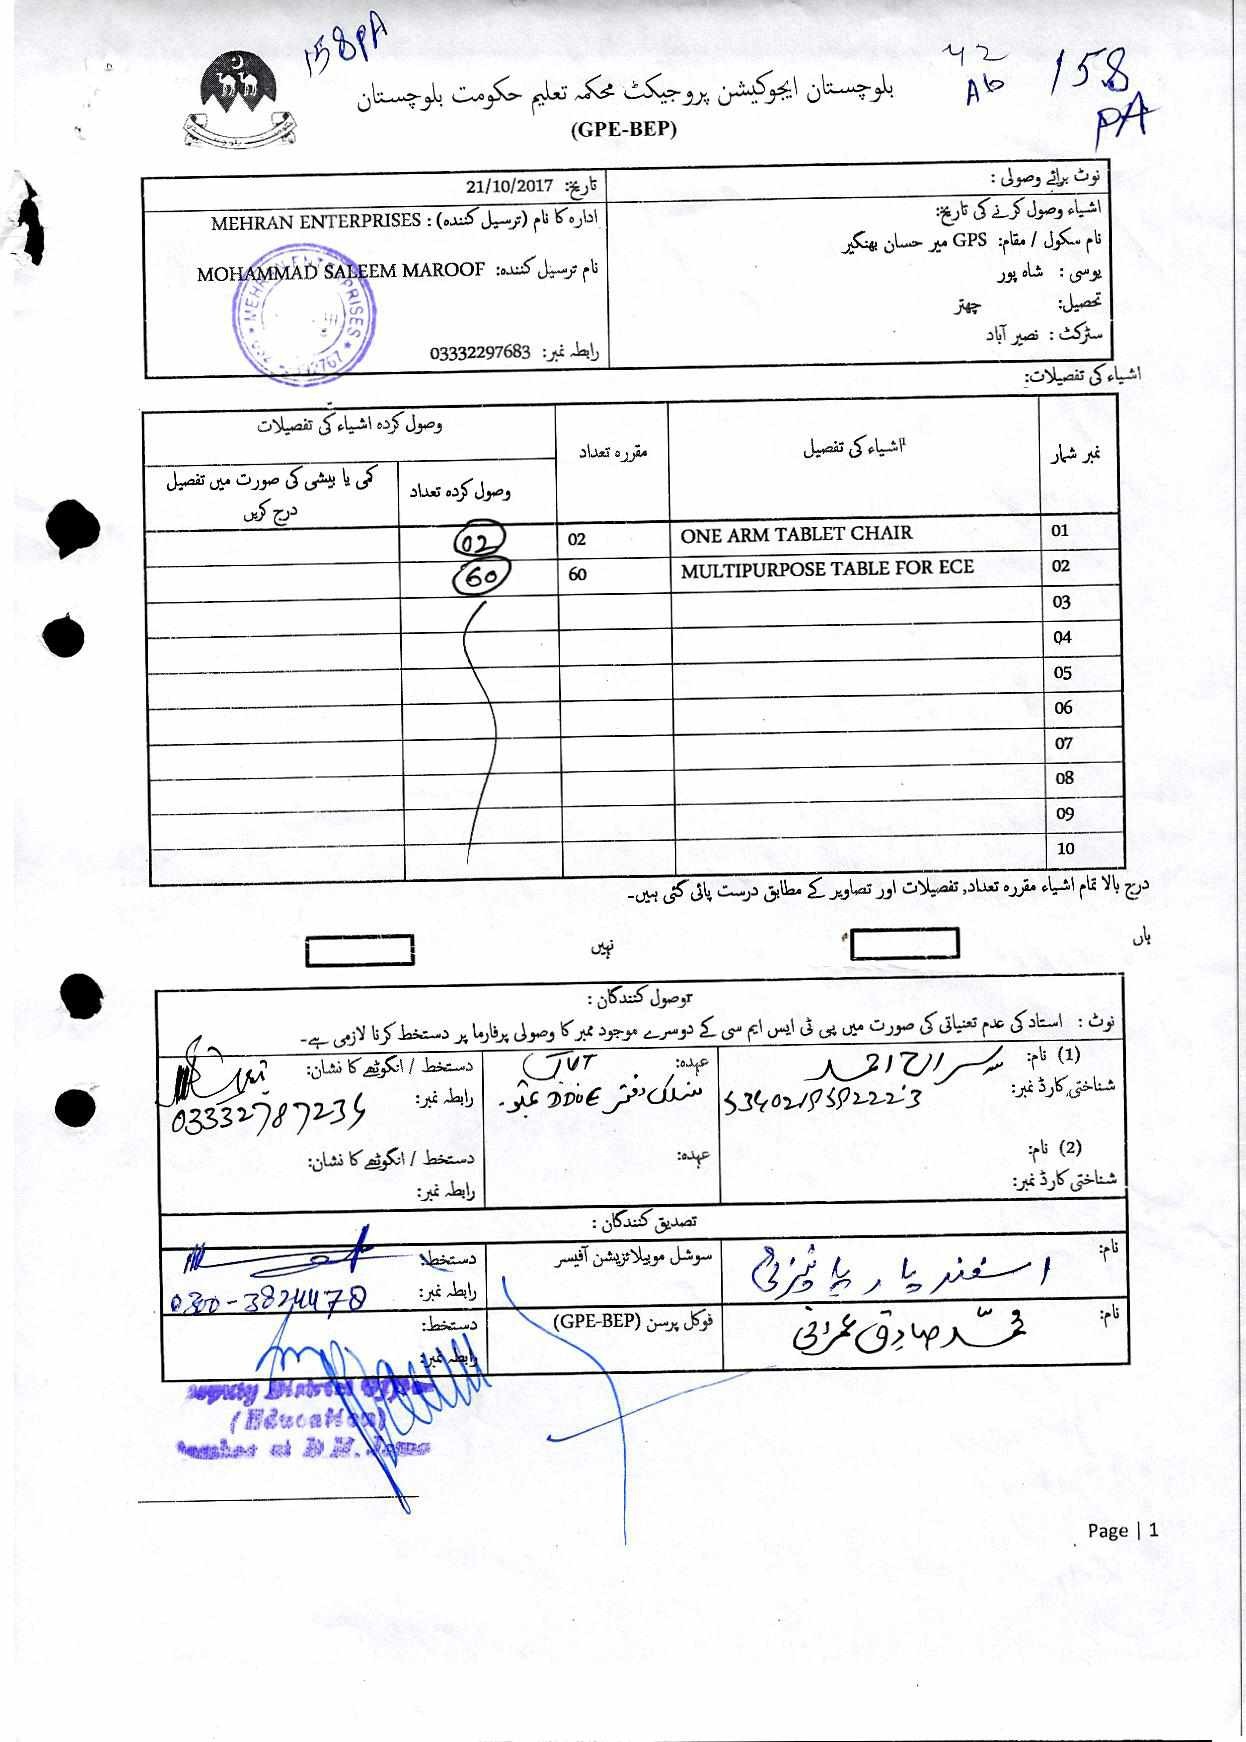 158PA
42
Ab
158
PA
بلوچستان ایجوکیشن پروجیکٹ محکمہ تعلیم حکومت بلوچستان
(GPE-BEP)
نوٹ برائے وصولی :
تاریخ: 21/10/2017
اشیاء وصول کرنے کی تاریخ:
ادارہ کا نام (ترسیل کنندہ) : MEHRAN ENTERPRISES
نام سکول / مقام: GPS میر حسان بھنگیر
نام ترسیل کنندہ: MOHAMMAD SALEEM MAROOF
یوسی : شاہ پور
تحصیل: چھتر
سٹرکٹ : نصیر آباد
رابطہ نمبر: 03332297683
MEHRAN ENTERPRISES
اشیاء کی تفصیلات:
نمبر شمار
اشیاء کی تفصیل
مقررہ تعداد
وصول کردہ اشیاء کی تفصیلات
وصول کردہ تعداد
کمی یا بیشی کی صورت میں تفصیل درج کریں
01 ONE ARM TABLET CHAIR 02 02
02 MULTIPURPOSE TABLE FOR ECE 60 60
03
04
05
06
07
08
09
10
درج بالا تمام اشیاء مقررہ تعداد, تفصیلات اور تصاویر کے مطابق درست پائی گئی ہیں۔
ہاں
نہیں
وصول کنندگان :
نوٹ : استاد کی عدم تعنیاتی کی صورت میں پی ٹی ایس ایم سی کے دوسرے موجود ممبر کا وصولی پرفارما پر دستخط کرنا لازمی ہے۔
(1) نام: سراج احمد
عہدہ: JVT
دستخط / انگوٹھے کا نشان:
شناختی کارڈ نمبر:
منسلک دفتر DDOE
رابطہ نمبر: 03332787234
(2) نام:
عہدہ:
دستخط / انگوٹھے کا نشان:
شناختی کارڈ نمبر:
رابطہ نمبر:
تصدیق کنندگان :
نام:
سوشل موبیلائزیشن آفیسر
دستخط:
رابطہ نمبر: 0300-3824478
نام: محمد صادق عمرانی
فوکل پرسن (GPE-BEP)
دستخط:
رابطہ نمبر:
Deputy District
(Education)
at D.M.
Page | 1